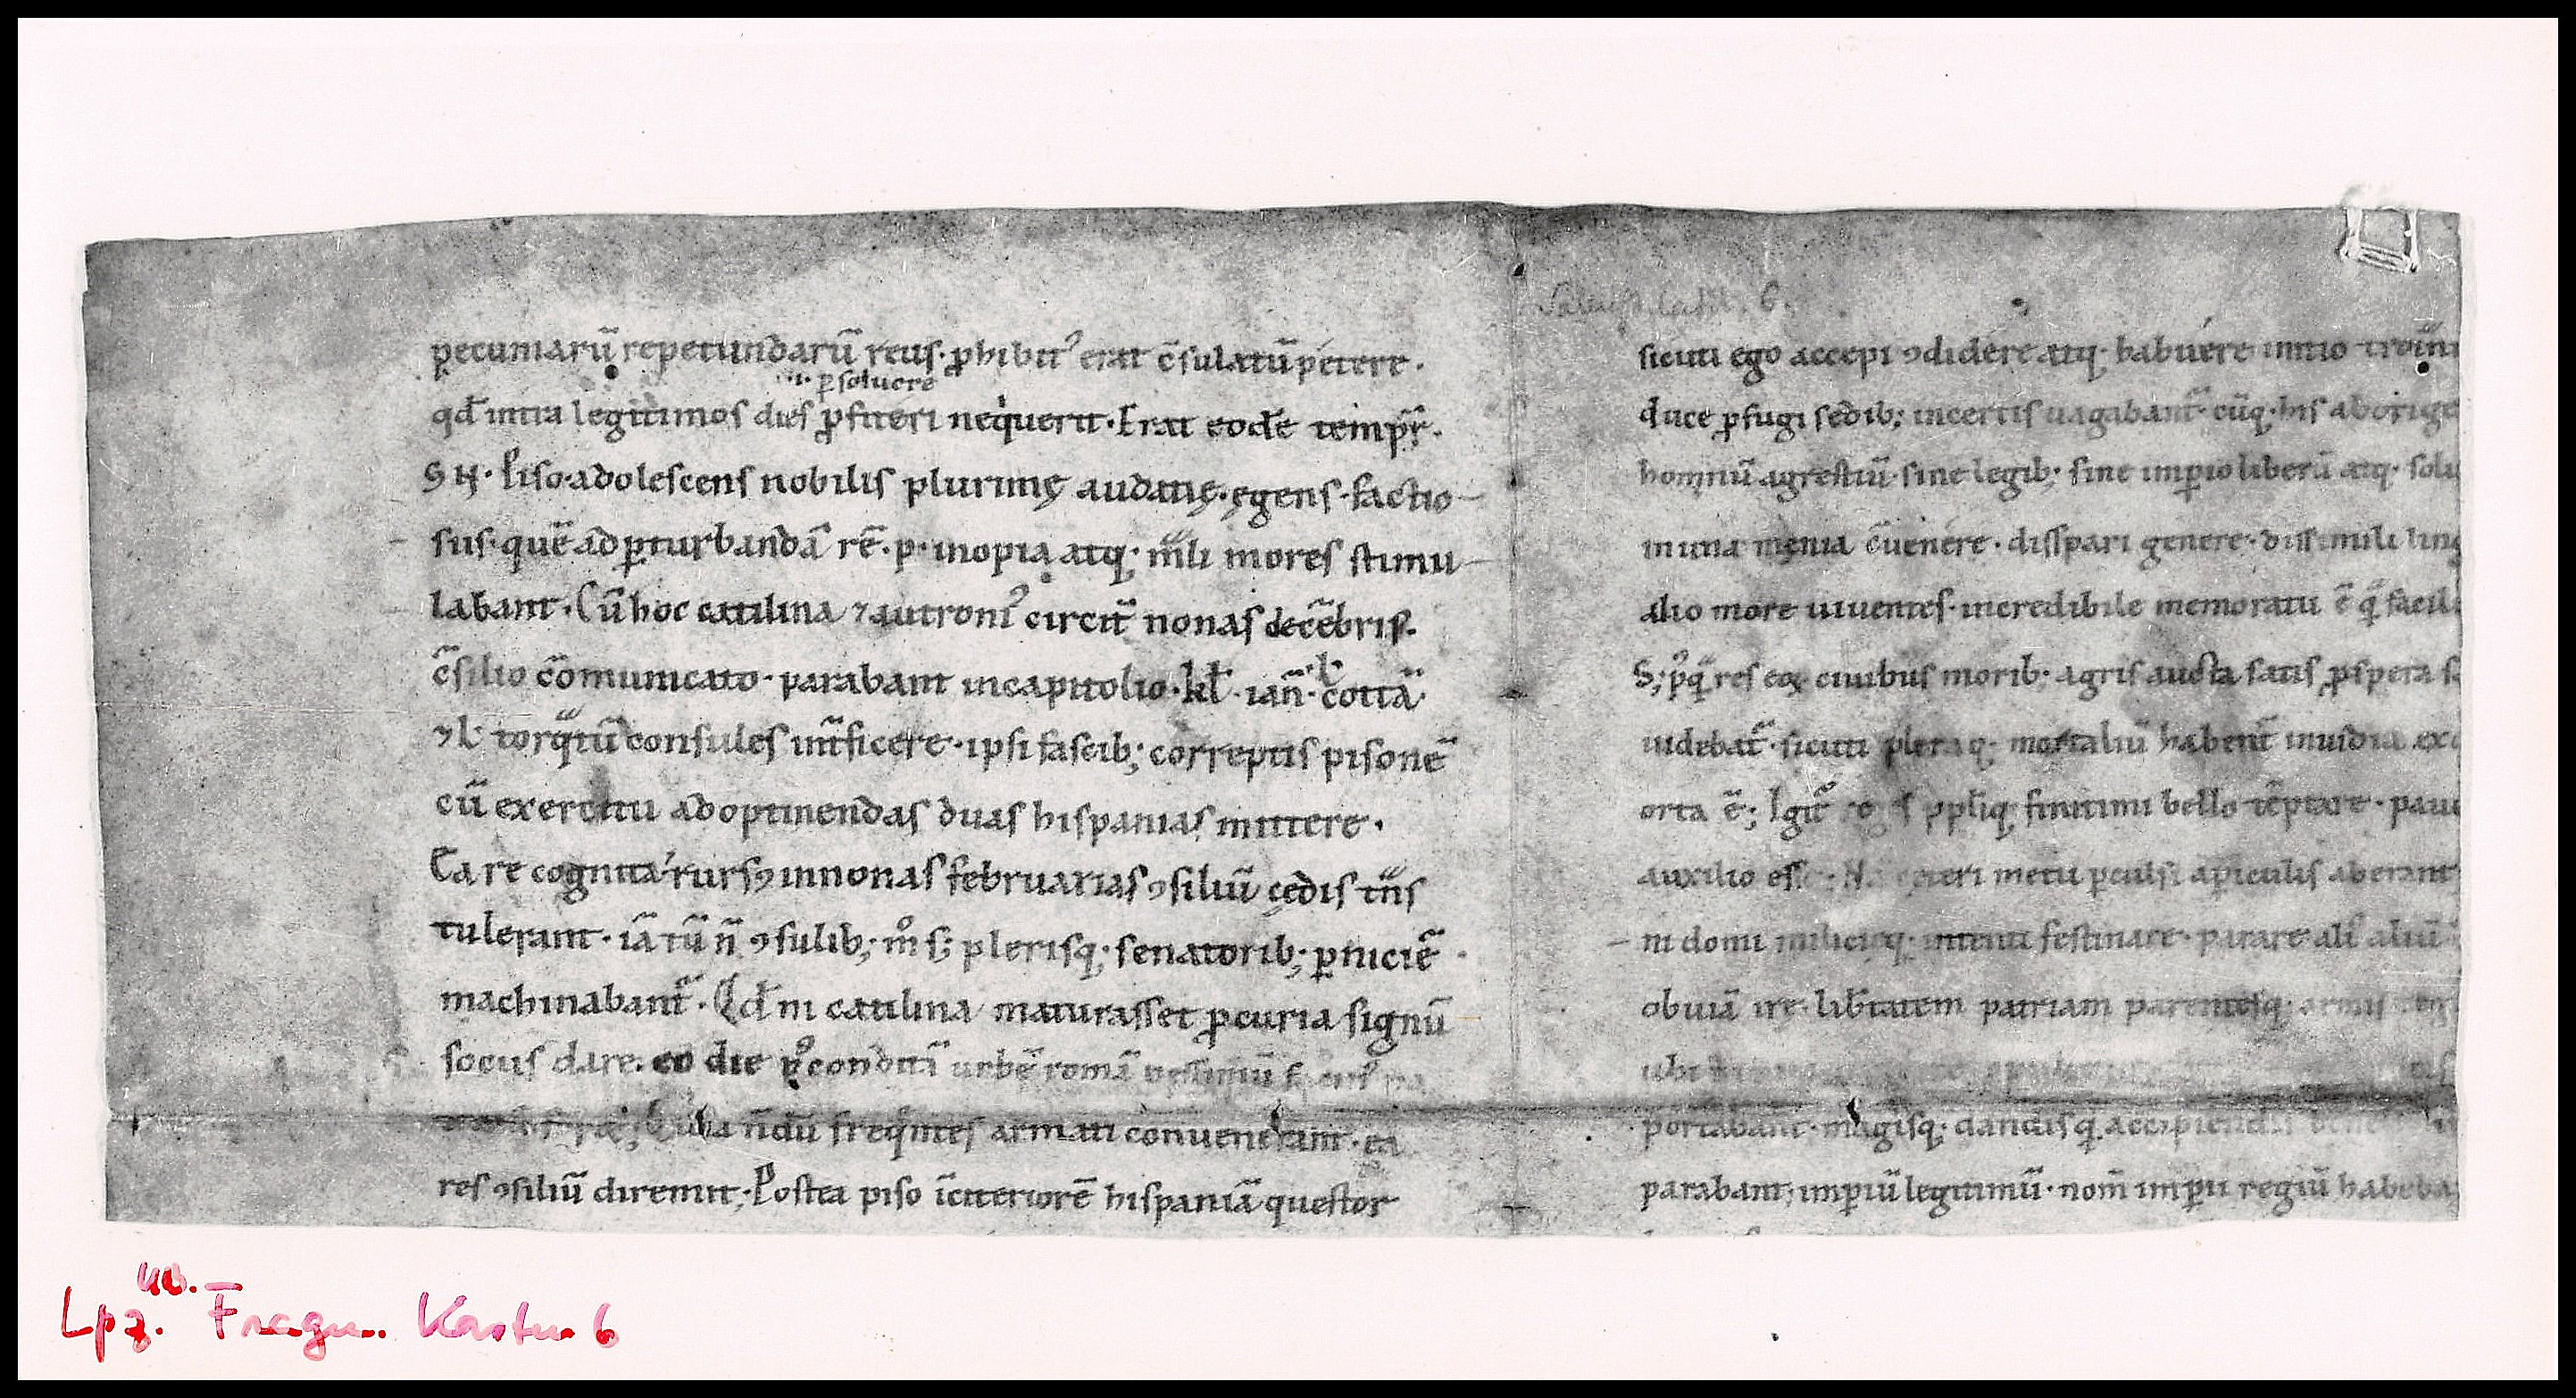 pecuniarū repetundarū reus· ꝓhibit᾽ erat c̄sulatū petere·
.i. ꝑsoluere
qđ intra legitimos dies ꝓfiteri neq̇uerit· Erat eodē temp̄r·
GN· Piso· adolescens nobilis plurimę audatię· ęgens· factio-
sus· quē ad ꝑturbandā rē· p· inopia atq; mali mores stimu-
labant· Cū hoc catilina ⁊ autroni᾽ circit̄ nonas decēbris·
c̄silio cōmunicato· parabant in capitolio· kl̄· ian̄· L· cottā·
⁊ L· torq̄tū consules int̄ficere· ipsi fascib; correptis pisonē
cū exercitu ad optinendas duas hispanias mittere·
Ea re cognita rursꝰ in nonas februarias ꝯsiliū cędis t̄ns
tulerant· iā tū n̄ ꝯsulib; m̊ s; plerisq; senatorib; ꝑniciē
machinabant̄· Qđ ni catilina maturasset ꝓ curia signū
sociis dare· eo die p̊ conditā urbē romā pessimū facin᾽
n̄dū freq̄ntes armati conuenerant· ea
res ꝯsiliū diremit; Postea piso ī citeriorē hispaniā questor
Sallust. Catil. 6.
sicuti ego accepi ꝯdidere atq; habuere initio troiāni
duce ꝓfugi sedib; incertis uagabant̄· cūq; his aborige
hominū agrestiū· sine legib; sine imꝑio liberū atq; solu
in una męnia c̄uenere· dispari genere· dissimili ling
alio more uiuentes· incredibile memoratu ē q̄ facile
S; p̊q̄ res eoꝝ ciuibus morib; agris aucta satis ꝓspera s
uidebat̄· sicuti pleraq; mortaliū habent̄ inuidia ex o
orta ē; Igit̄ ꝓpliq; finitimi bello tēptare· pauc
auxilio esse· Nā ceteri metu ꝑculsi a ꝑiculis aberant
ni domi militięq; intenti festinare· parare ali᾽ aliū
obuiā ire· lib̄tatem patriam parentesq; armis teg
ubi
portabant· magisq; dandis q̄ accipiendis bene
parabant; imꝑiū legitimū· nom̄ imꝑii regiū habeba
Lpz. UB. Fragm. Kasten 6